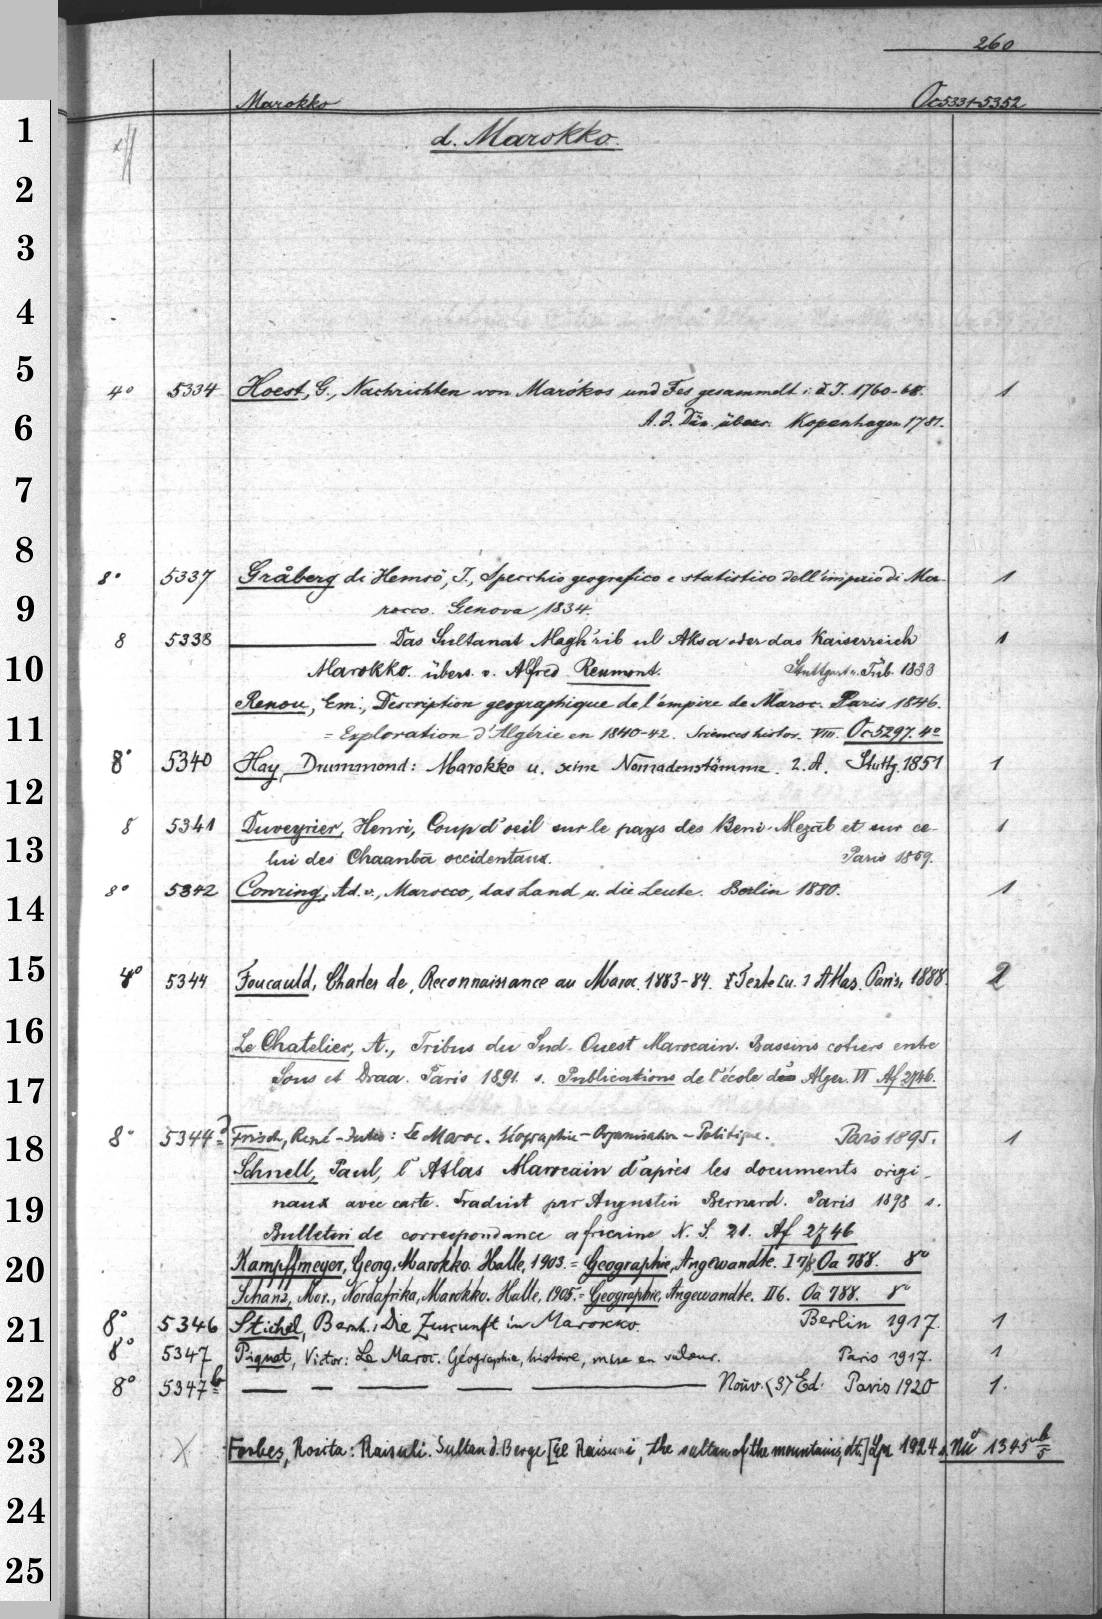 260
Marokko Oc5331-5352
1
d. Marokko.
2
3
4
5
4° 5334 Hoest, G., Nachrichten von Marókos und Fes gesammelt i. d. J. 1760-68. 1
6
A. d. Dän. übers. Kopenhagen 1781.
7
8
8° 5337 Gråberg di Hemsö, J., Specchio geografico e statistico dell'imperio di Ma- 1
9
rocco. Genova 1834.
8 5338 Das Sultanat Magh'rib ul Aksa oder das Kaiserreich 1
10
Marokko. übers. v. Alfred Reumont. Stuttgart u. Tüb. 1833
Renou, Em., Description geographique de l'empire de Maroc. Paris 1846.
11
= Exploration d'Algérie en 1840-42. Sciences histor. VIII. Oc5297. 4°
8° 5340 Hay, Drummond: Marokko u. seine Nomadenstämme. 2. A. Stuttg. 1851 1
12
8 5341 Duveyrier, Henri, Coup d'oeil sur le pays des Beni-Mezāb et sur ce- 1
13
lui des Chaanbā occidentaux. Paris 1859.
8° 5342 Conring, Ad. v., Marocco, das Land u. die Leute. Berlin 1880. 1
14
15
4° 5344 Foucauld, Charles de, Reconnaissance au Maroc. 1883-84. Texte u. Atlas. Paris, 1888. 2
16
Le Chatelier, A., Tribus du Sud-Ouest Marocain. Bassins cotiers entre
17
Sous et Draa. Paris 1891. s. Publications de l'école des Alger. VI Af 2746.
18
8° 5344a Frisch, René-Jules: Le Maroc. Géographie-Organisation-Politique. Paris 1895. 1
Schnell, Paul, l'Atlas Marocain d'après les documents origi-
19
naux avec carte. Traduit par Augustin Bernard. Paris 1898 s.
Bulletin de correspondance africaine N. S. 21. Af 2746
20
Kampffmeyer, Georg, Marokko. Halle, 1903. = Geographie, Angewandte. I 7/8 Oa 788. 8°
Schanz, Mor., Nordafrika, Marokko. Halle, 1905. = Geographie, Angewandte. II 6. Oa 788. 8°
21
8° 5346 Stichel, Bernh.: Die Zukunft in Marokko. Berlin 1917. 1
8° 5347 Piquet, Victor: Le Maroc. Géographie, histoire, mise en valeur. Paris 1917. 1
22
8° 5347b Nouv. (3) Ed. Paris 1920 1.
23
X Forbes, Rosita: Raisuli. Sultan d. Berge [El Raisuni, the sultan of the mountains, dt.] Lpz 1924 s. Nu 1345
24
25